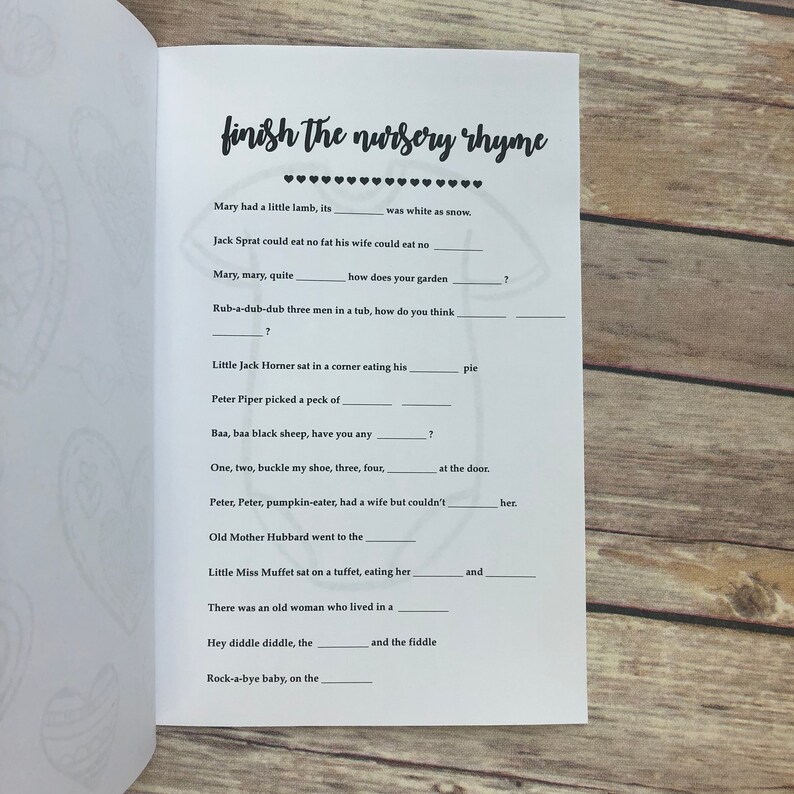 finish the nursery rhyme
Mary had a little lamb, its __________ was white as snow.
Jack Sprat could eat no fat his wife could eat no __________
Mary, mary, quite __________ how does your garden __________ ?
Rub-a-dub-dub three men in a tub, how do you think __________ __________
__________ ?
Little Jack Horner sat in a corner eating his __________ pie
Peter Piper picked a peck of __________ __________
Baa, baa black sheep, have you any __________ ?
One, two, buckle my shoe, three, four, __________ at the door.
Peter, Peter, pumpkin-eater, had a wife but couldn't __________ her.
Old Mother Hubbard went to the __________
Little Miss Muffet sat on a tuffet, eating her __________ and __________
There was an old woman who lived in a __________
Hey diddle diddle, the __________ and the fiddle
Rock-a-bye baby, on the __________